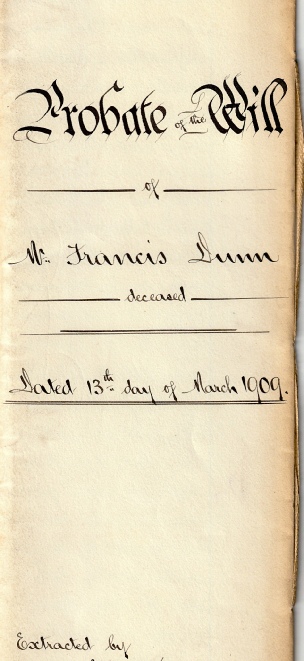 Probate of the Will
of
Mr. Francis Dunn
deceased
Dated 13th day of March 1909.
Extracted by